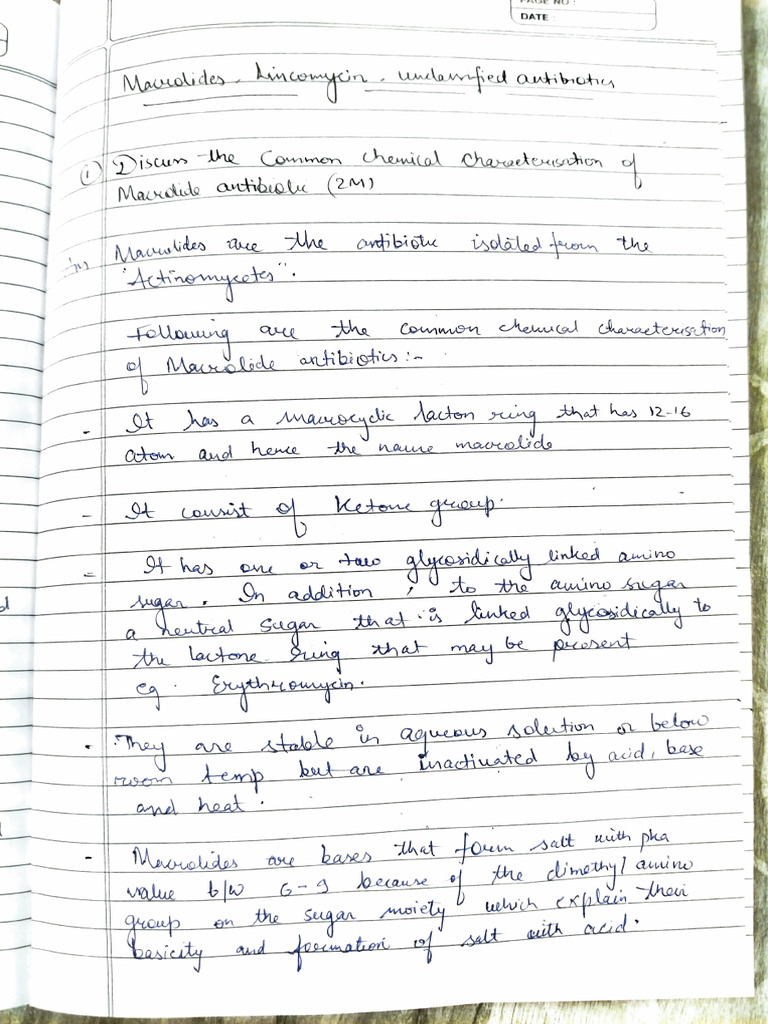 PAGE NO :
DATE
Macrolides, Lincomycin, unclassified antibiotics
(i) Discuss the Common Chemical Characterisation of
Macrolide antibiotic (2M)
Macrolides are the antibiotic isolated from the
"Actinomycetes".
Following are the common chemical characterisation
of Macrolide antibiotics:-
- It has a macrocyclic lacton ring that has 12-16
atom and hence the name macrolide
- It consist of Ketone group.
= It has one or two glycosidically linked amino
sugar. In addition, to the amino sugar
a neutral sugar that is linked glycosidically to
the lactone ring that may be present
eg. Erythromycin.
. They are stable in aqueous solution or below
room temp but are inactivated by acid, base
and heat.
- Macrolides are bases that form salt with pka
value b/w 6-9 because of the dimethyl amino
group on the sugar moiety which explain their
basicity and formation of salt with acid.